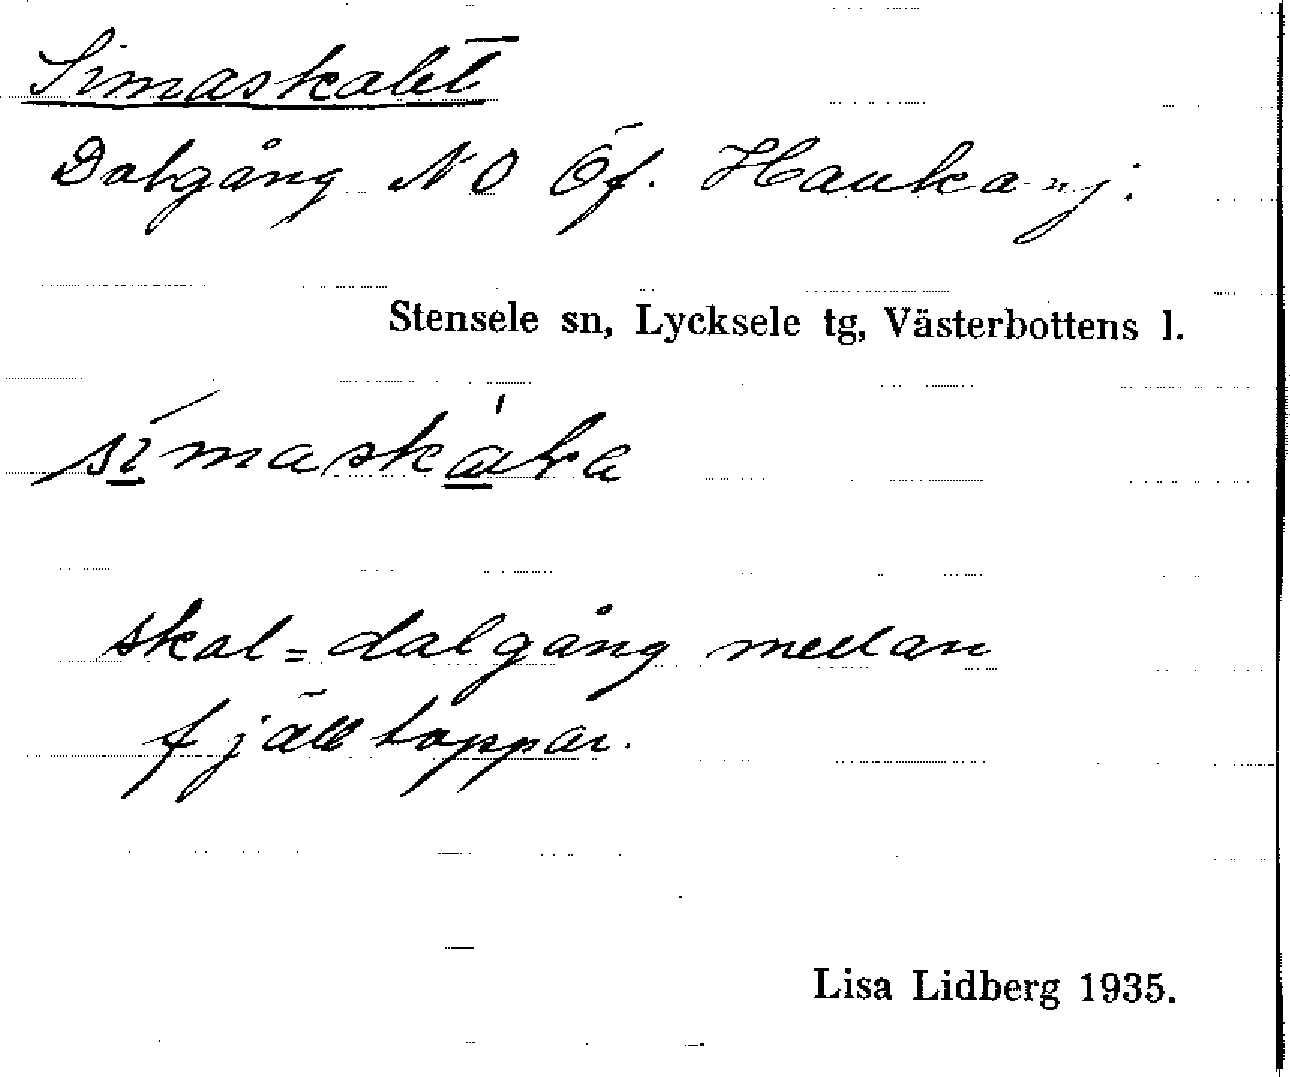 Simaskalet
Dalgång NO Öf. Haukasj.
Stensele sn, Lycksele tg, Västerbottens l.
skal = dalgång mellan
fjälltoppar.
Lisa Lidberg 1935.